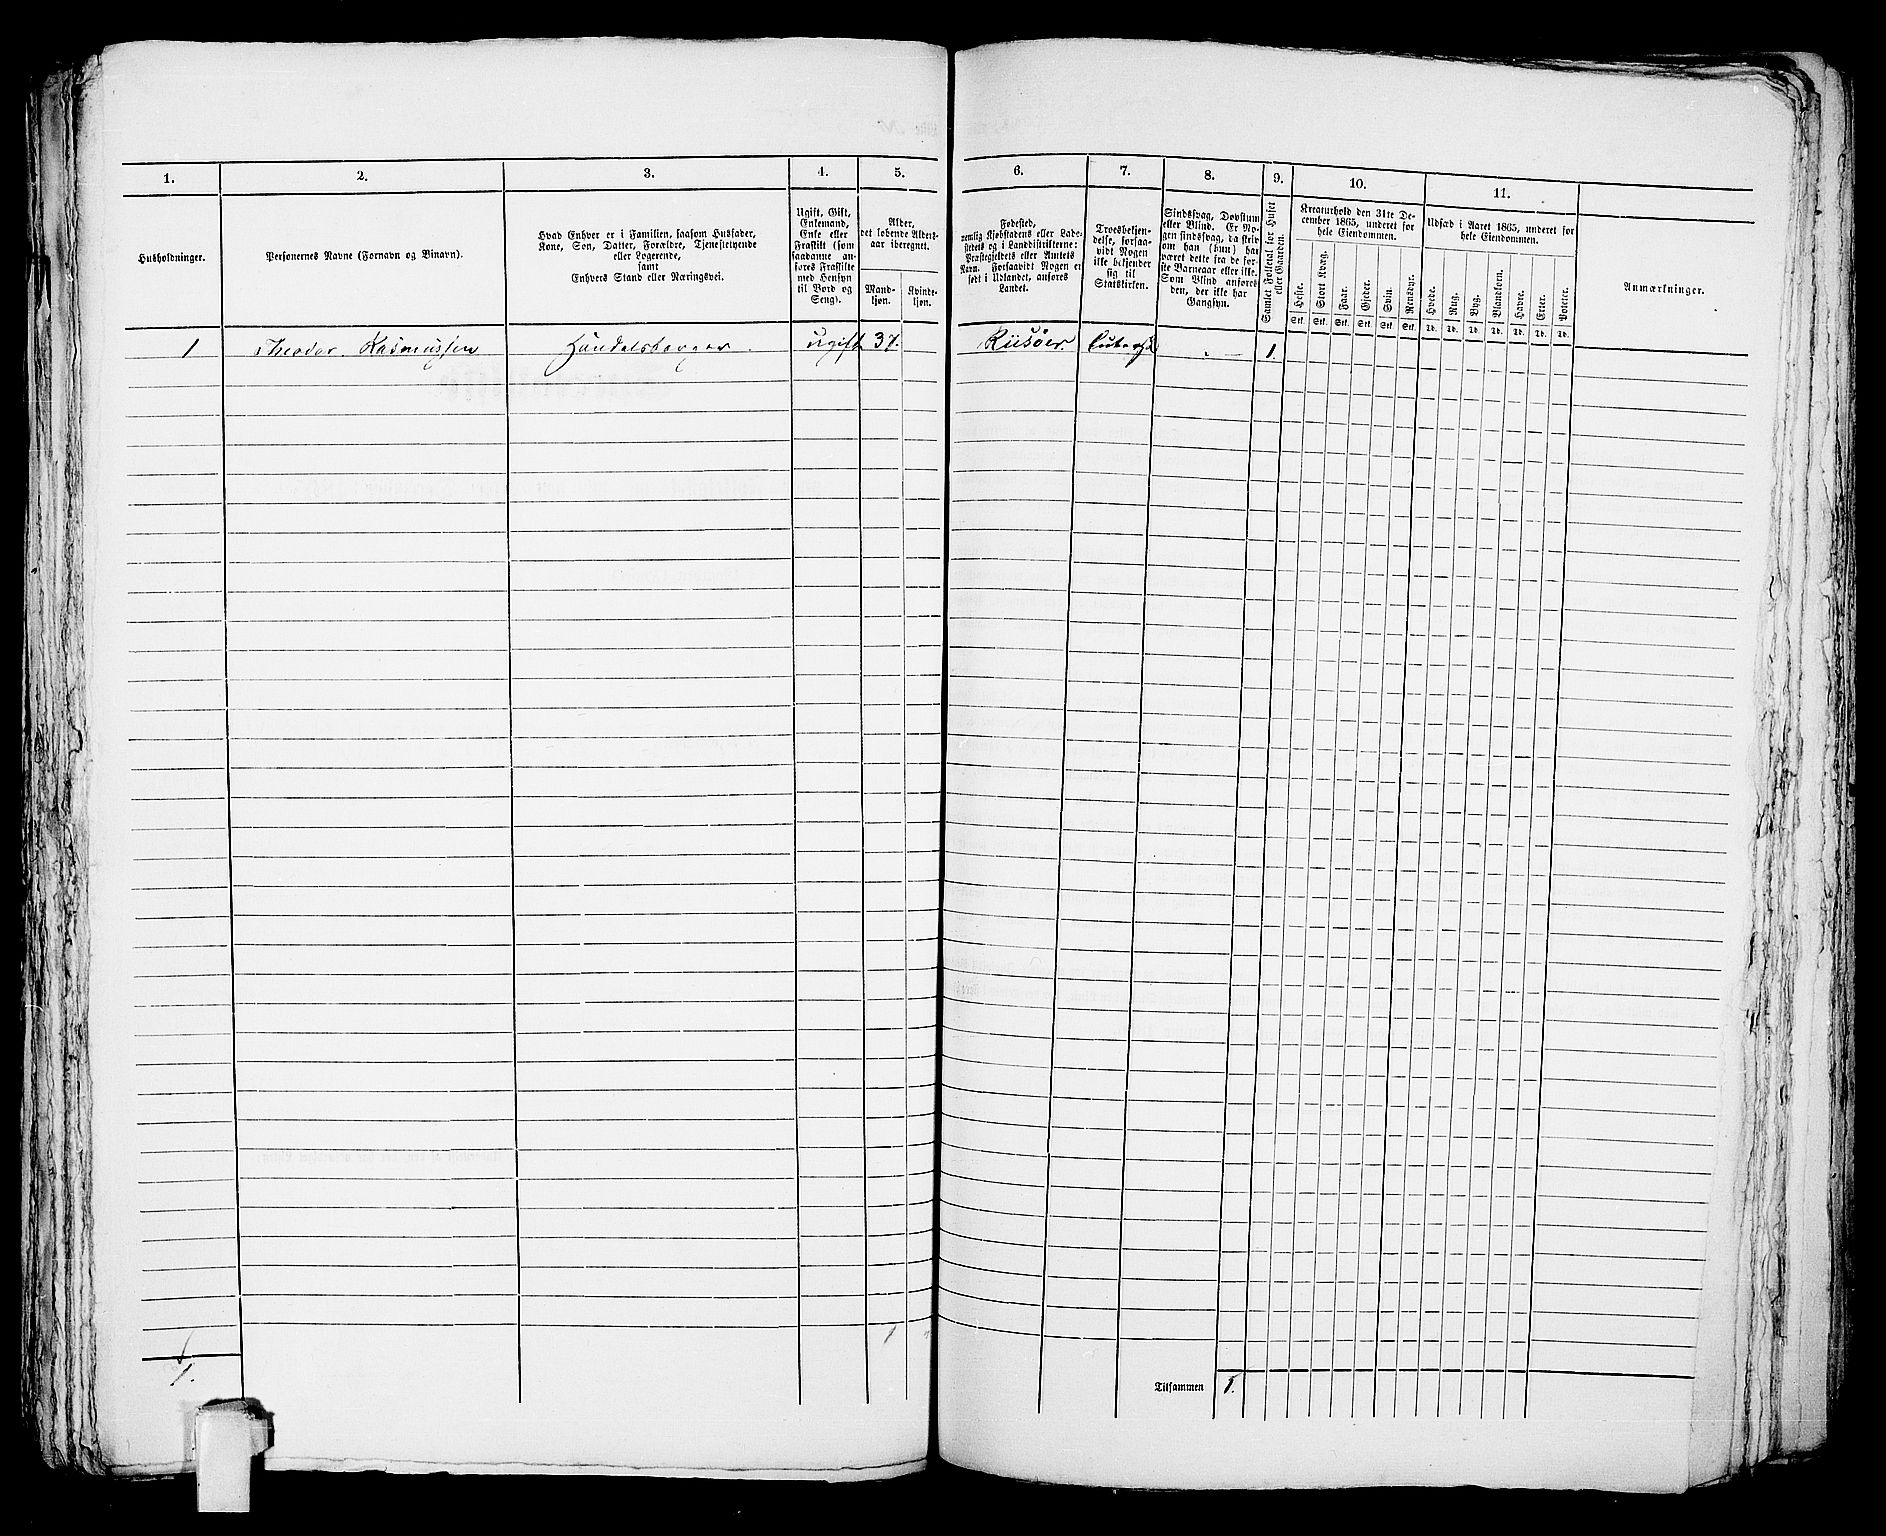 1. 2. 3. 4. 5. 6. 7. 8. 9. 10. 11.
Husholdninger.
Personernes Navne (Fornavn og Binavn).
Hvad Enhver er i Familien, saasom Husfader,
Kone, Søn, Datter, Forældre, Tjenestetyende
eller Logerende,
samt
Enhvers Stand eller Næringsvei.
Ugift, Gift,
Enkemand,
Enke eller
Fraskilt (som
saadanne an-
føres Fraskilte
med Hensyn
til Bord og
Seng).
Alder,
det løbende Alders-
aar iberegnet.
Mand-
kjøn.
Kvinde-
kjøn.
Fødested,
nemlig Kjøbstadens eller Lade-
stedets og i Landdistrikterne:
Præstegjeldets eller Amtets
Navn. Forsaavidt Nogen er
født i Udlandet, anføres
Landet.
Troesbekjen-
delse, forsaa-
vidt Nogen
ikke bekjender
sig til
Statskirken.
Sindssvag, Døvstum
eller Blind. Er No-
gen sindssvag, da skriv
om han (hun) har
været dette fra de før-
ste Barneaar eller ikke.
Som Blind anføres
den, der ikke har
Gangsyn.
Samlet Folketal for Huset
eller Gaarden.
Kreaturhold den 31te De-
cember 1865, underet for
hele Eiendommen.
Heste. Stort Kvæg. Faar. Gjeder. Svin. Rensdyr.
Stk. Stk. Stk. Stk. Stk. Stk.
Udsæd i Aaret 1865, underet for
hele Eiendommen.
Hvede. Rug. Byg. Blandkorn. Havre. Erter. Poteter.
Td. Td. Td. Td. Td. Td. Td.
Anmærkninger.
1 Theodor Rasmussen Handelsborger. ugift 37. Riisøer. 1.
1
1.
Tilsammen 1.